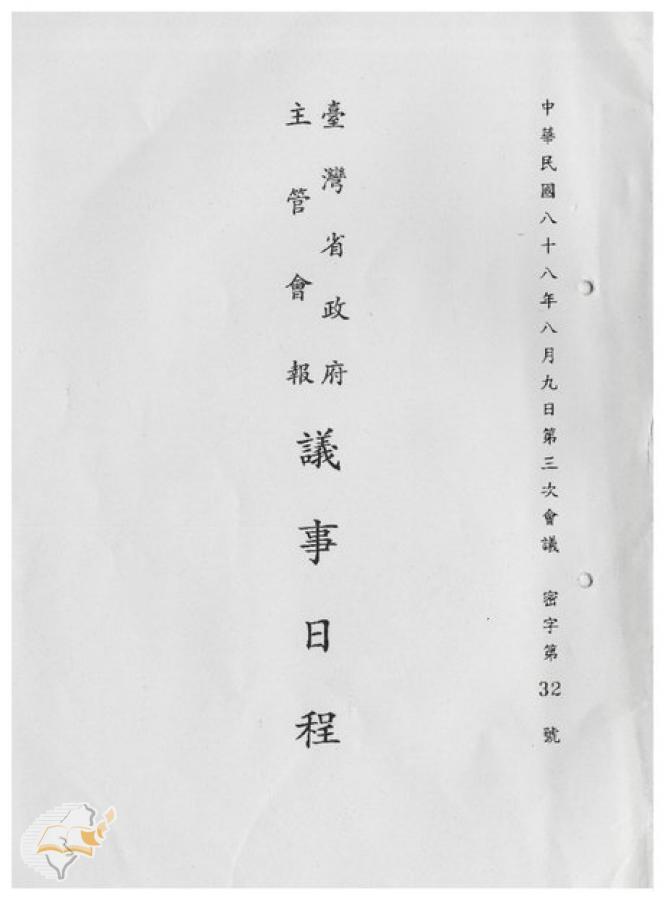 中華民國八十八年八月九日第三次會議 密字第32號
臺灣省政府
主管會報
議事日程